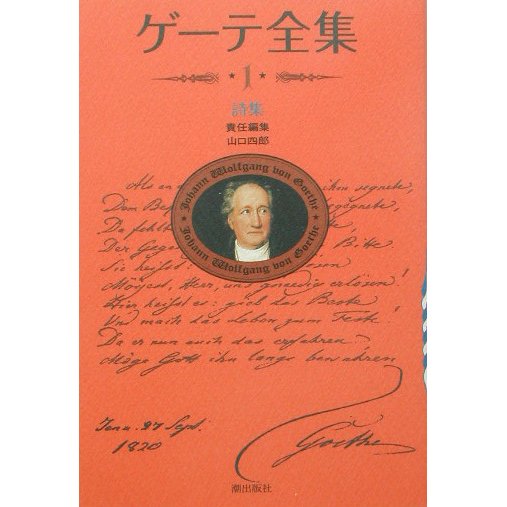 ゲーテ全集
1
詩集
責任編集
山口四郎
Johann Wolfgang von Goethe
Johann Wolfgang von Goethe
Als an ihm segnete,
Dem
Da fehlt
Der Bitte
Sie heißt: lösen
Möget, Herr, uns gnaedig erlösen!
Hier heißt es: gieb das Beste
Und mach das Leben zum Fest!
Da er nun auch das erfahren
Möge Gott ihn lange bewahren
Jena. 27 Sept.
1820
Goethe
潮出版社